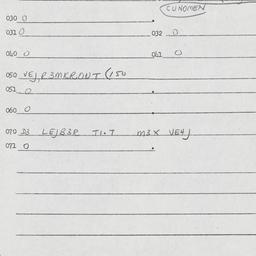 CUNOMEN
030 0 .
031 0 032 0
040 0 041 0
050 VEJ, R3MKRONT (150
051 0 .
060 0 .
070 D3 LEJB3R TI.T M3X VE4J
071 0 .